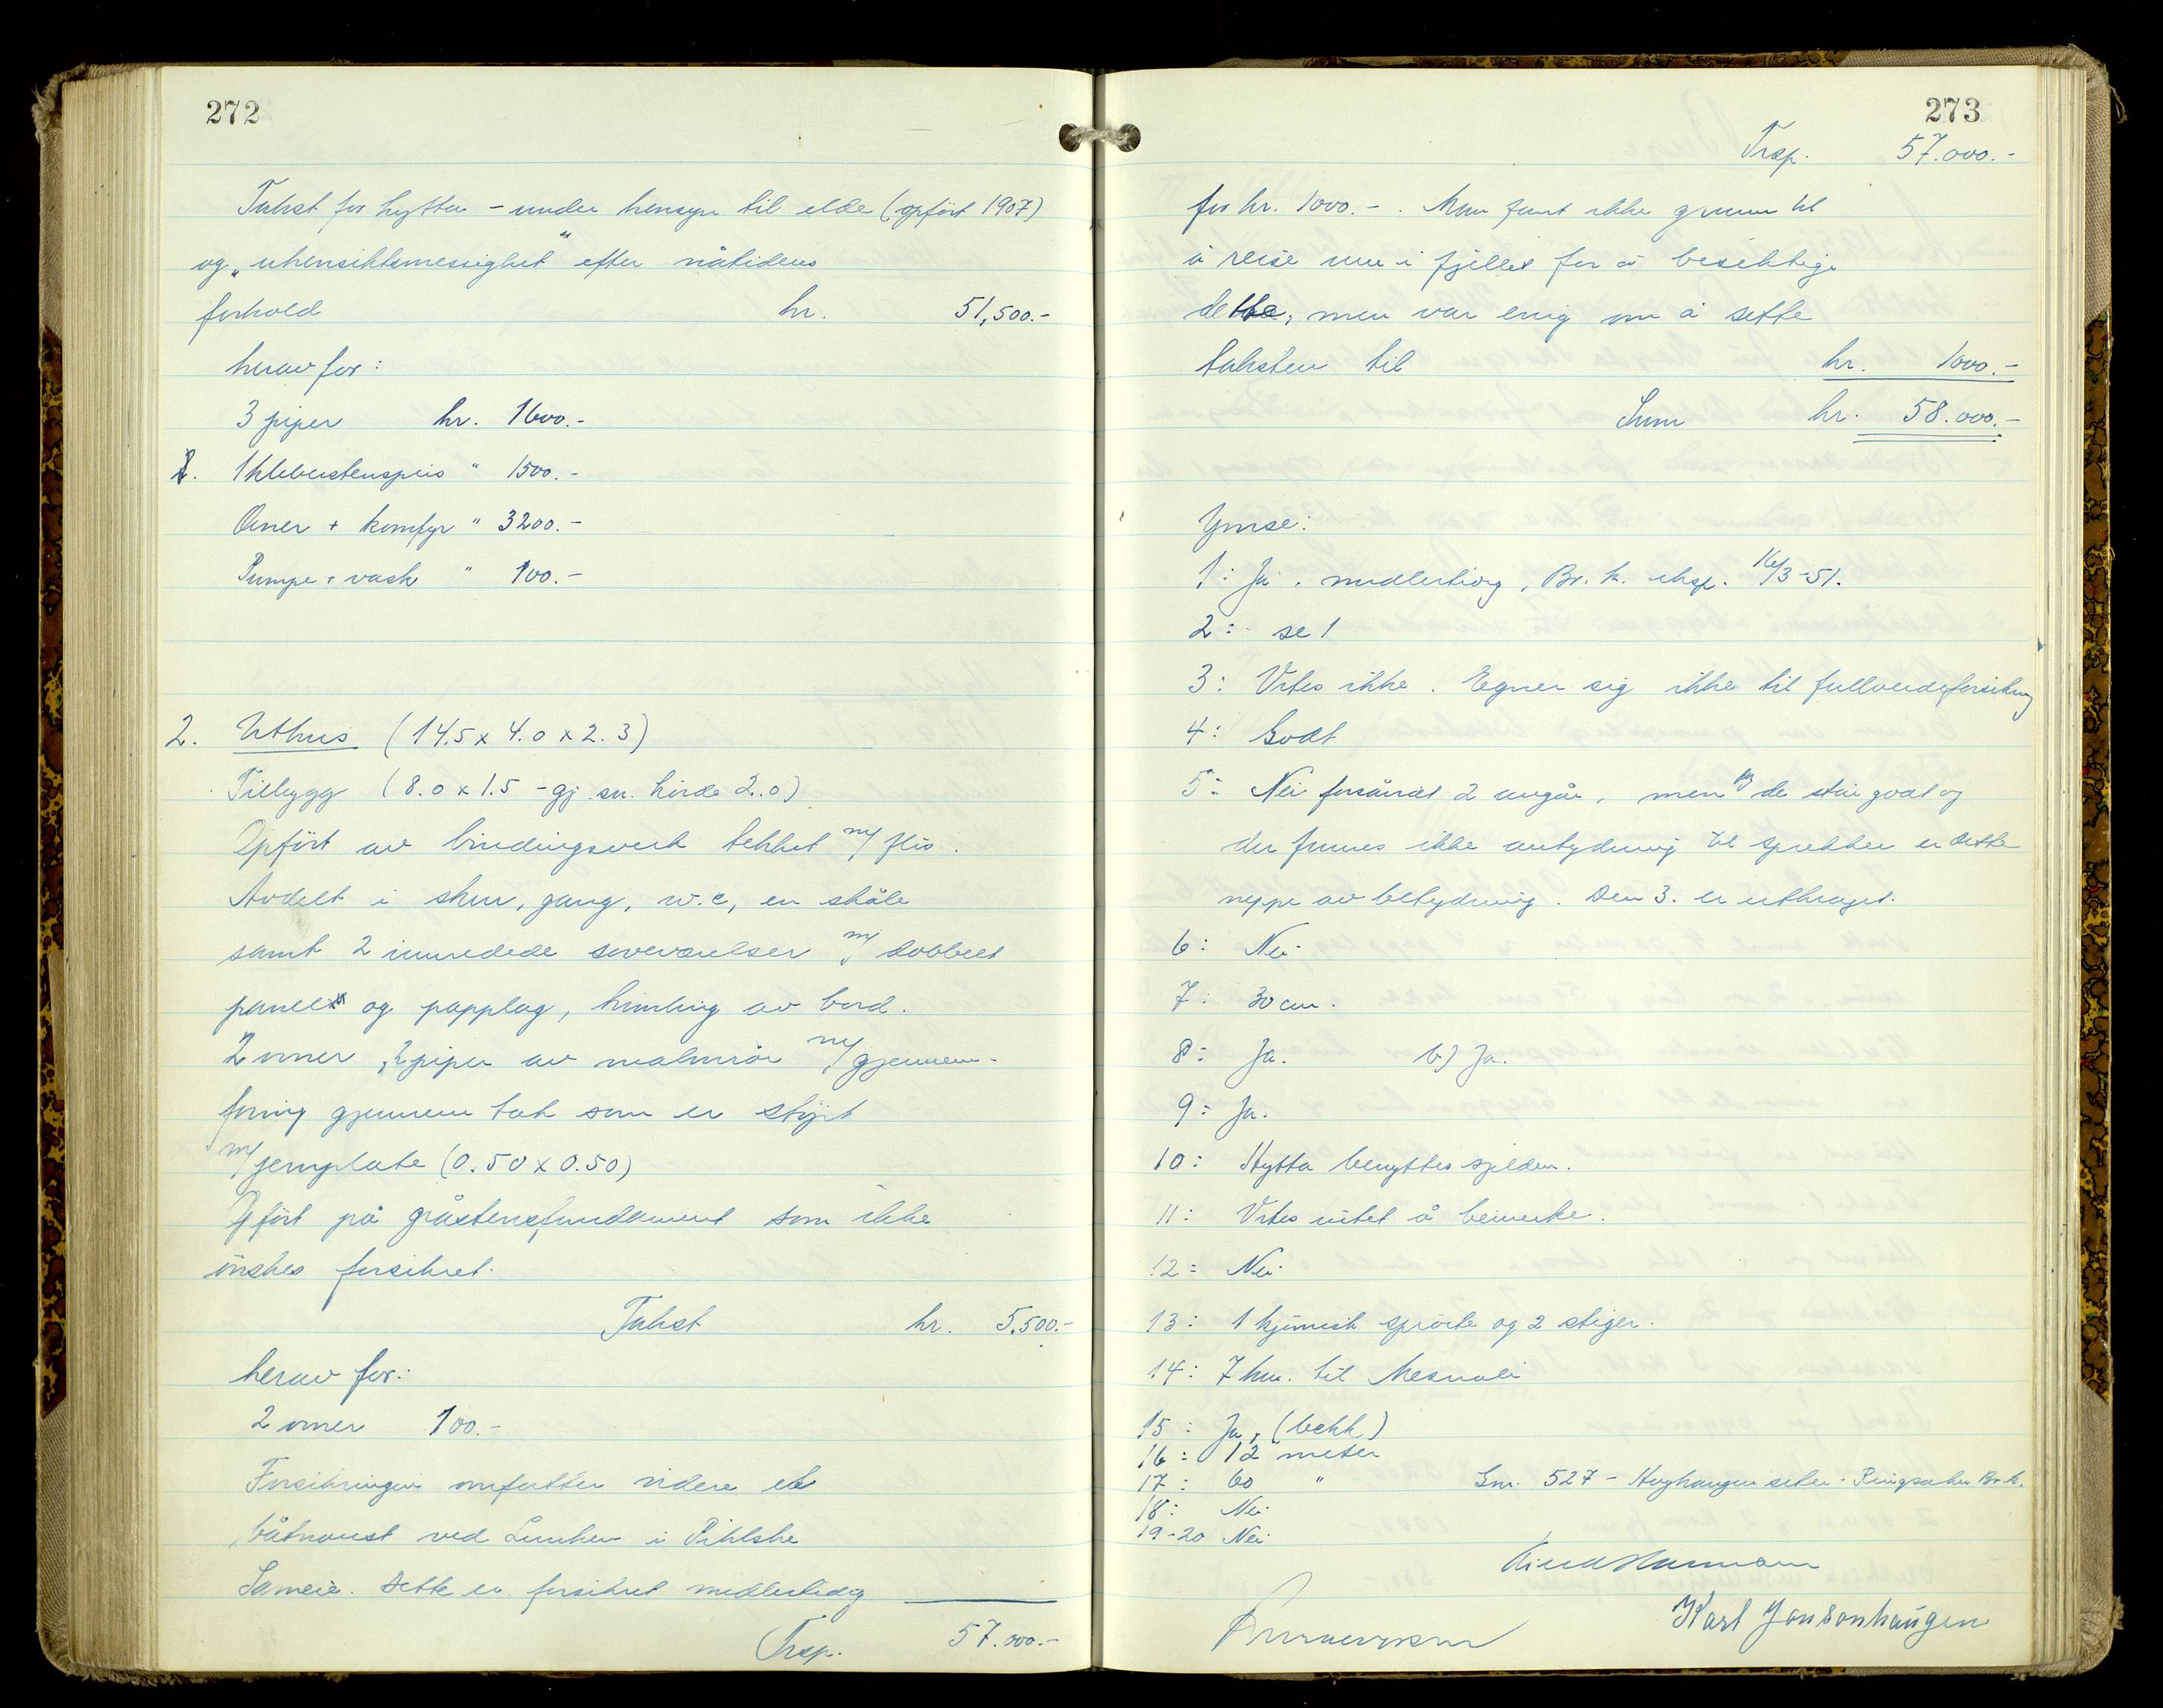 272
Takst for hytta - under hensyn til elde (opført 1907)
og "uhensiktsmessighet" efter nåtidens
forhold kr. 51,500.-
herav for:
3 piper kr. 1600.-
1 kleberstenspeis " 1500.-
Ovner + komfyr " 3200.-
Pumpe + vask " 100.-
2. Uthus (14.5 x 4.0 x 2.3)
Tilbygg (8.0 x 1.5 - gj.sn. höide 2.0)
Opfört av bindingsverk tekket m/ flis.
Avdelt i skur, gang, w.c, en skåle
samt 2 innredede soveværelser m/ dobbelt
panel og papplag, himling av bord.
2 ovner, 2 piper av malmrör m/ gjennem-
foring gjennem tak som er støpt
m/ jernplate (0.50 x 0.50)
Opfört på gråstensfundament som ikke
önskes forsikret.
Takst kr. 5.500.-
herav for:
2 ovner 100.-
Forsikringen omfatter videre et
båtnaust ved Lunken i Pihlske
Sameie. Dette er forsikret midlertidig
Trsp. 57.000.-
273
Trsp. 57.000.-
for kr. 1000.-. Man fant ikke grunn til
å reise inn i fjellet for å besiktige
dette, men var enig om å sette
taksten til kr. 1000.-
Sum kr. 58.000.-
Ymse:
1: Ja. midlertidig, Br. k. eksp. 16/3-51.
2: se 1
3: Vites ikke. Egner sig ikke til fullverdiforsikring
4: Godt
5: Nei forsåvidt 2 angår, men da de står godt og
der finnes ikke antydning til sprekker er dette
neppe av betydning. Den 3. er utkraget.
6: Nei
7: 30 cm.
8: Ja. b) Ja.
9: Ja.
10: Hytta benyttes sjelden.
11: Vites intet å bemerke.
12: Nei
13: 1 kjemisk spröite og 2 stiger.
14: 7 km. til Mesnali
15: Ja, (bekk)
16: 12 meter
17: 60 " Gnr. 527 - Høghaugen seter - Ringsaker Br.k.
18: Nei
19-20 Nei
Karl Jonsonhaugen